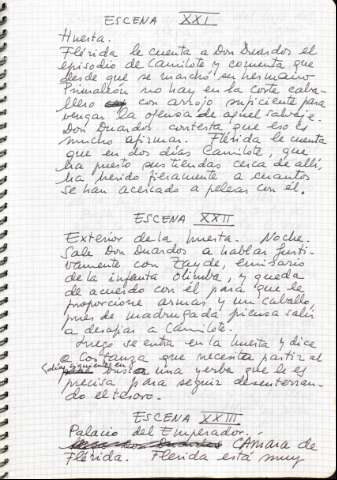 ESCENA XXI
Huerta.
Flérida le cuenta a Don Duardos el
episodio de Camilote y comenta que
desde que se marchó su hermano
Primaleón no hay en la corte caba-
llero con arrojo suficiente para
vengar la ofensa de aquel salvaje.
Don Duardos contesta que eso es
mucho afirmar. Flérida le cuenta
que en dos días Camilote, que
ha puesto sus tiendas cerca de allí,
ha herido fieramente a cuantos
se han acercado a pelear con él.
ESCENA XXII
Exterior de la huerta. Noche.
Sale Don Duardos a hablar furti-
vamente con emisario
de la infanta Olimba, y queda
de acuerdo con él para que le
proporcione armas y un caballo,
pues de madrugada piensa salir
a desafiar a Camilote.
Luego se entra en la huerta y dice
a Costanza que necesita partir al
busca una yerba que le es
precisa para seguir desenterran-
do el tesoro.
ESCENA XXIII
Palacio del Emperador.
Cámara de
Flérida. Flérida está muy